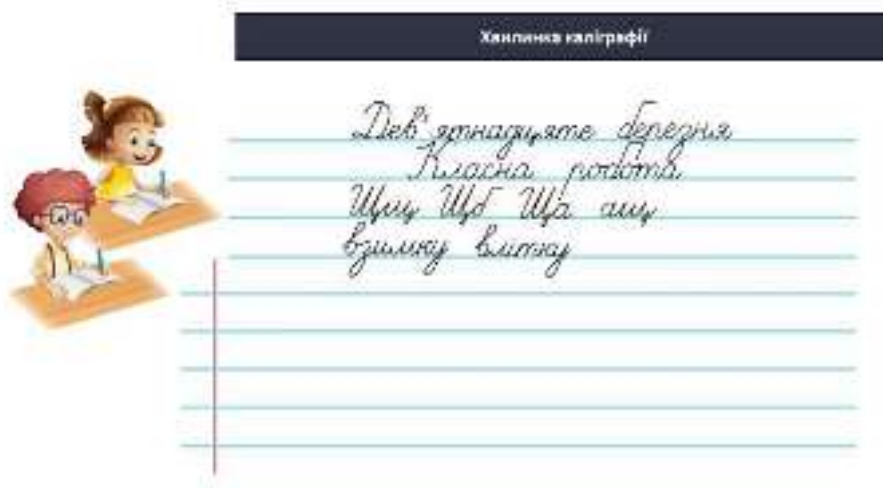 Хвилинка каліграфії
Дев'ятнадцяте березня
Класна робота
Щщ Щб Ща ащ
взимку влітку